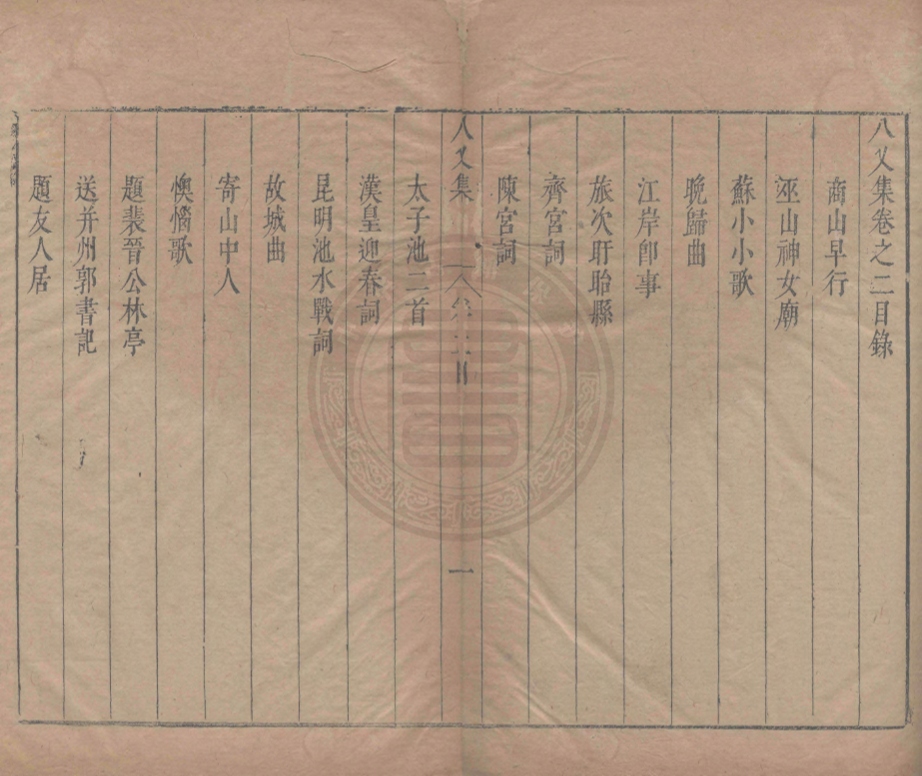 八乂集卷之二目錄
商山早行
巫山神女廟
蘇小小歌
晩歸曲
江岸卽事
旅次盱眙縣
齊宮詞
陳宮詞
八乂集
卷二目
一
太子池二首
漢皇迎春詞
昆明池水戰詞
故城曲
寄山中人
懊惱歌
題裴晉公林亭
送并州郭書記
題友人居